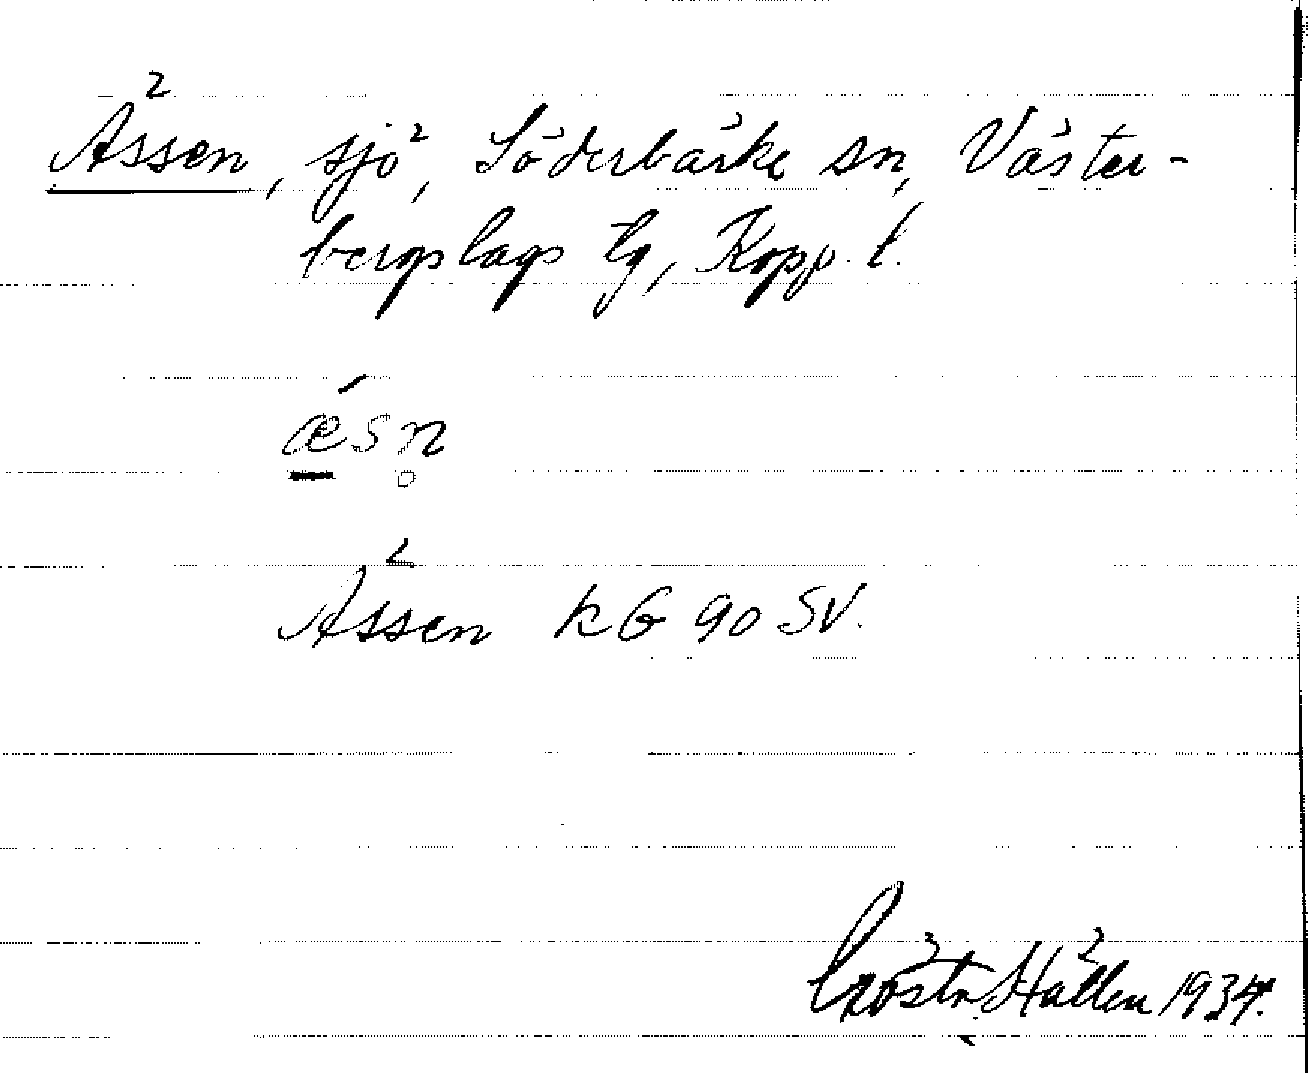 Ässen, sjö, Söderbärke sn, Väster-
bergslags tg, Kopp. l.
ǽsn̥
Ässen KG 90 SV.
Gösta Hållen 1934.